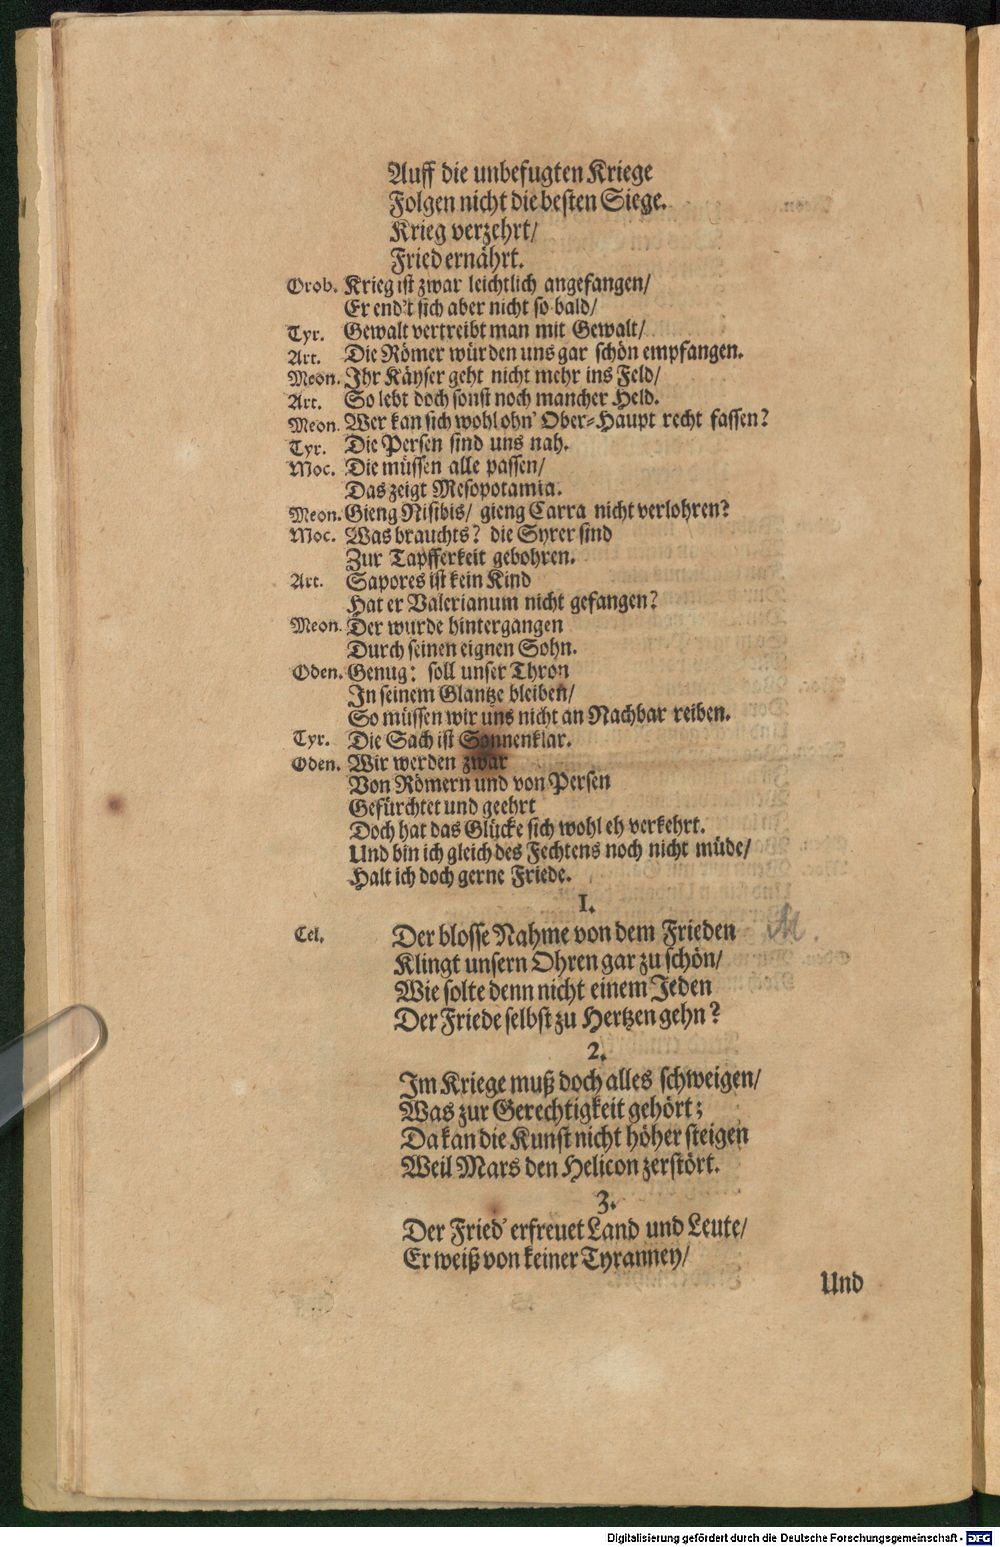 Auff die unbefugten Kriege
Folgen nicht die besten Siege.
Krieg verzehrt/
Fried ernährt.
Orob. Krieg ist zwar leichtlich angefangen/
Er end't sich aber nicht so bald/
Tyr. Gewalt vertreibt man mit Gewalt/
Art. Die Römer würden uns gar schön empfangen.
Meon. Ihr Käyser geht nicht mehr ins Feld/
Art. So lebt doch sonst noch mancher Held.
Meon. Wer kan sich wohl ohn' Ober-Haupt recht fassen?
Tyr. Die Persen sind uns nah.
Moc. Die müssen alle passen/
Das zeigt Mesopotamia.
Meon. Gieng Nisibis/ gieng Carra nicht verlohren?
Moc. Was brauchts? die Syrer sind
Zur Tapfferkeit gebohren.
Art. Sapores ist kein Kind
Hat er Valerianum nicht gefangen?
Meon. Der wurde hintergangen
Durch seinen eignen Sohn.
Oden. Genug: soll unser Thron
In seinem Glantze bleiben/
So müssen wir uns nicht an Nachbar reiben.
Tyr. Die Sach ist Sonnenklar.
Oden. Wir werden zwar
Von Römern und von Persen
Gefürchtet und geehrt
Doch hat das Glücke sich wohl eh verkehrt.
Und bin ich gleich des Fechtens noch nicht müde/
Halt ich doch gerne Friede.
1.
Cel. Der blosse Nahme von dem Frieden M.
Klingt unsern Ohren gar zu schön/
Wie solte denn nicht einem Jeden
Der Friede selbst zu Hertzen gehn?
2.
Im Kriege muß doch alles schweigen/
Was zur Gerechtigkeit gehört;
Da kan die Kunst nicht höher steigen
Weil Mars den Helicon zerstört.
3.
Der Fried' erfreuet Land und Leute/
Er weiß von keiner Tyranney/
Und
Digitalisierung gefördert durch die Deutsche Forschungsgemeinschaft - DFG